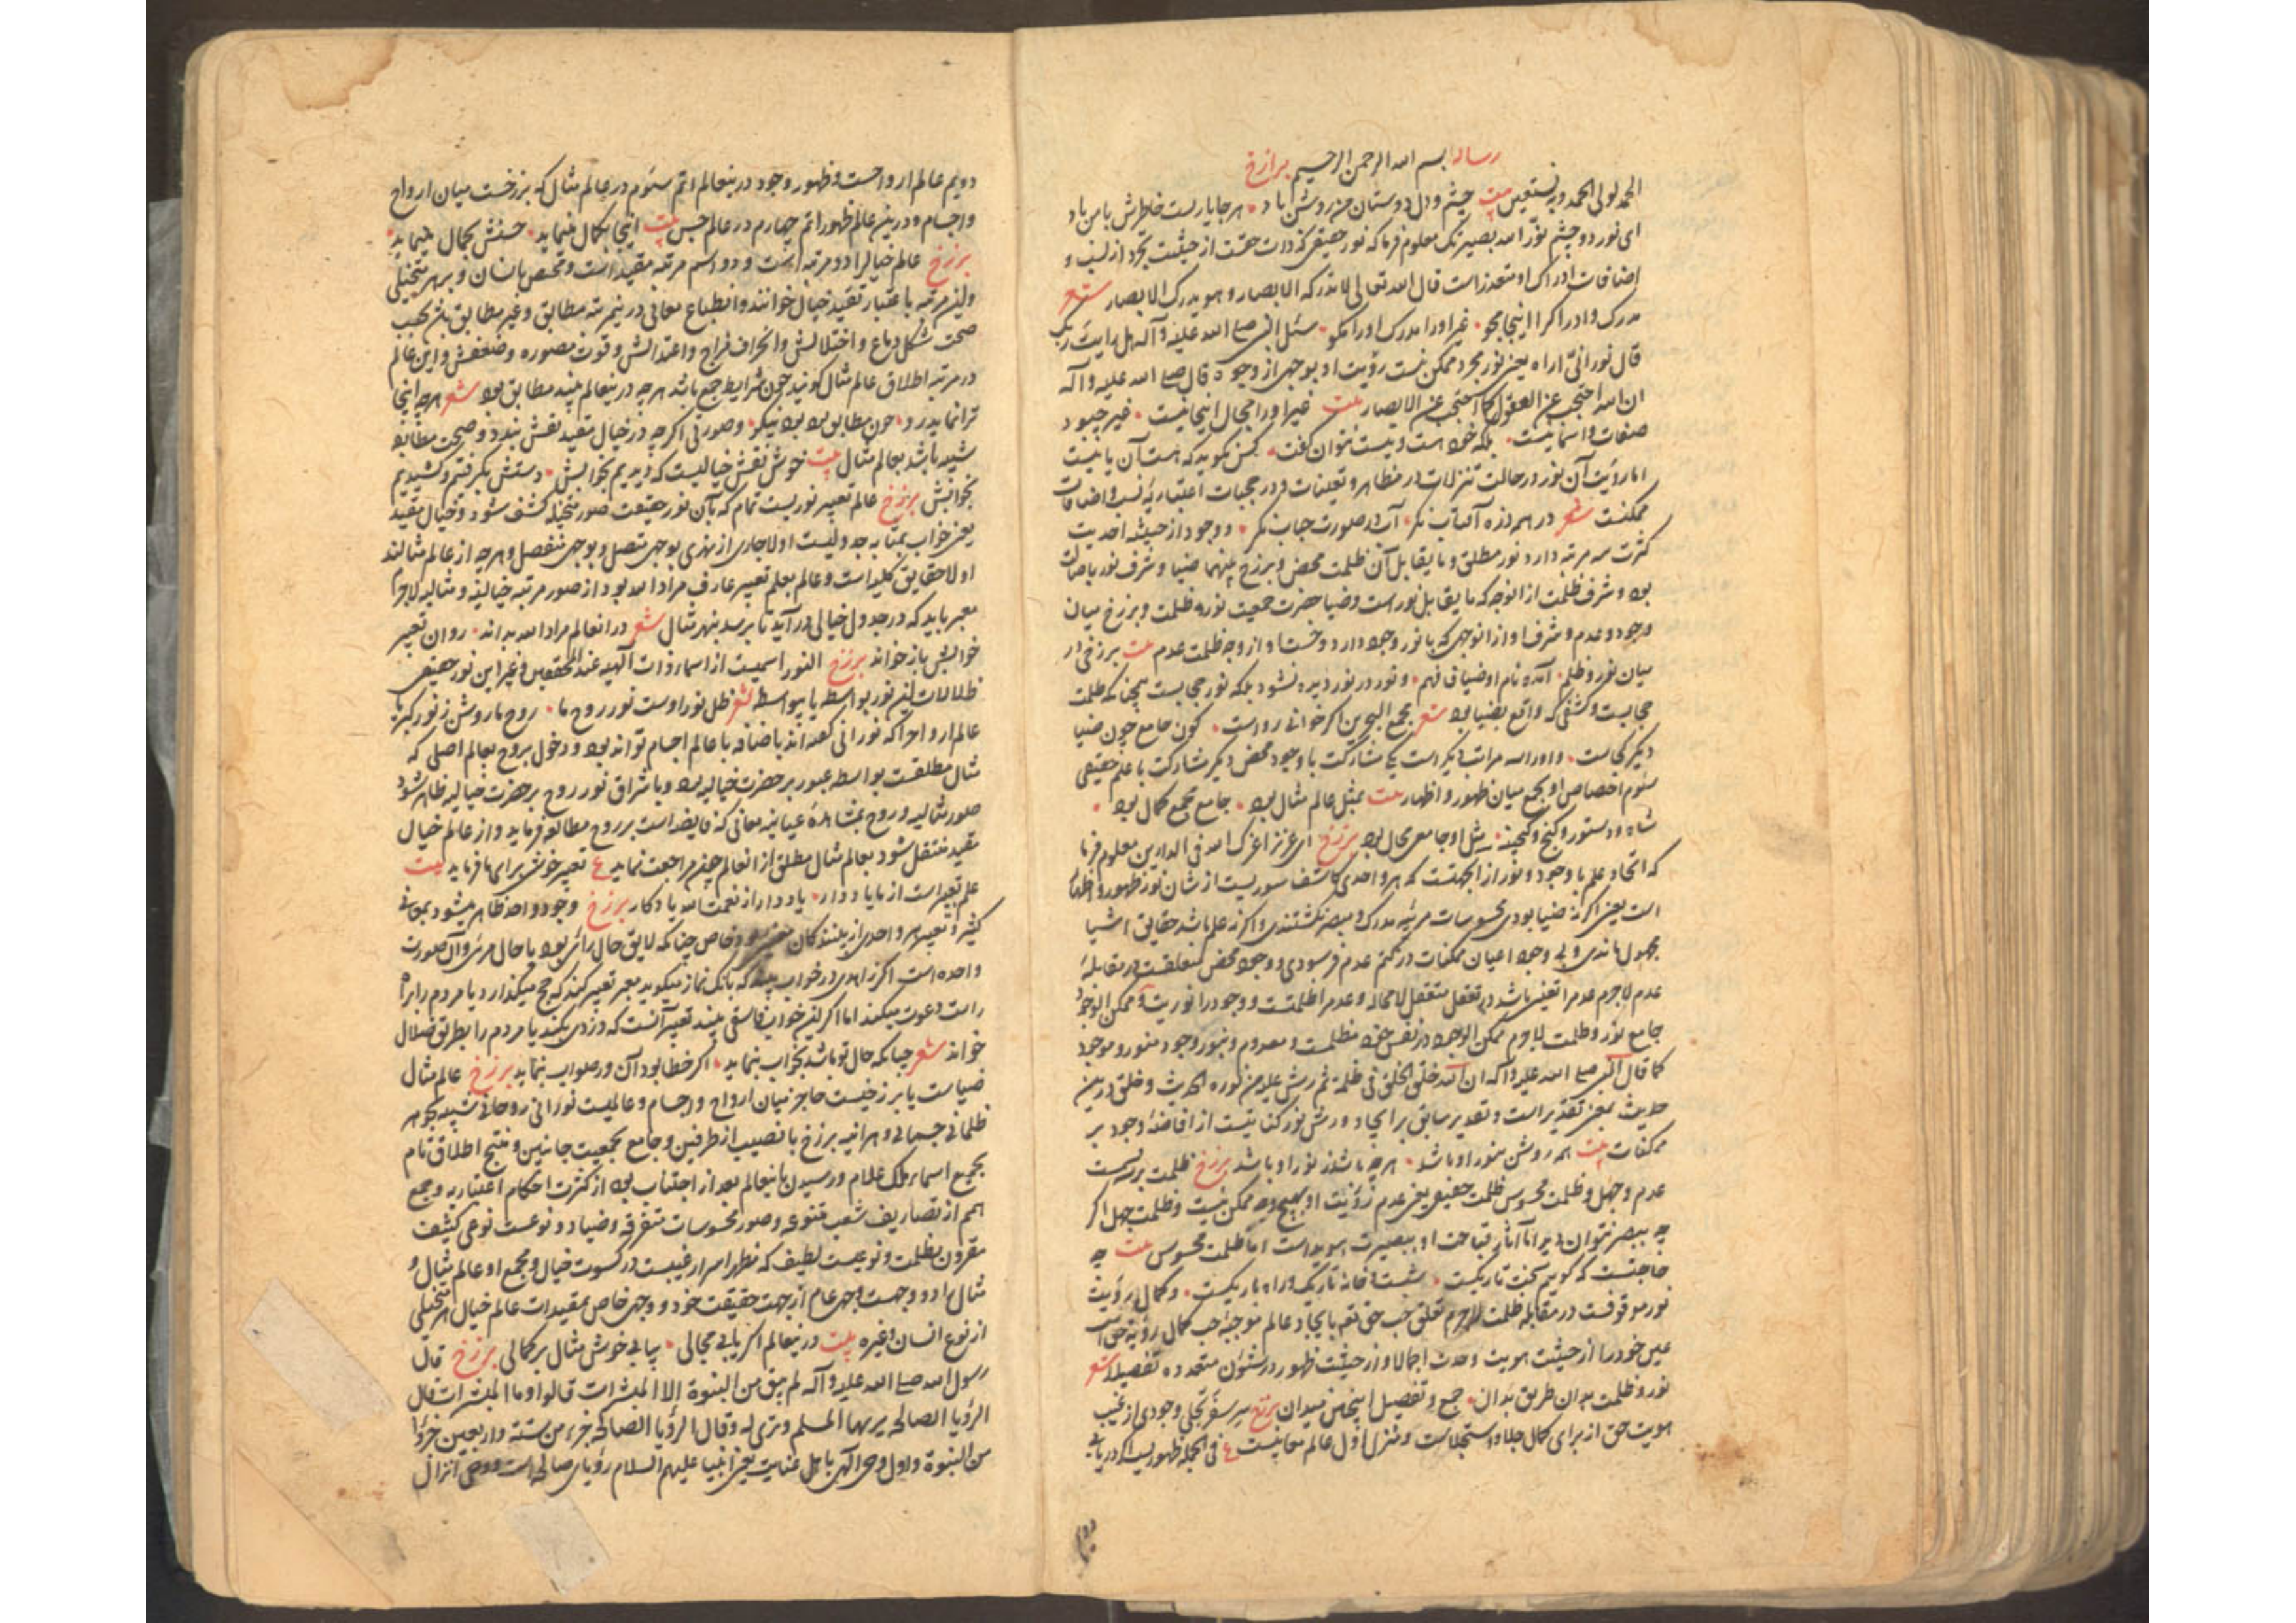 رساله بسم الله الرحمن الرحیم برازخ
الحمد لولی الحمد وبه نستعین بیت چشم و دل دوستان من روشن باد هر جا یاریست خاطرش با من باد
ای نور دو چشم نور الله بصیرتک معلوم فرما که نور حقیقی که ذات حقست از حیثیت تجرد از نسب و
اضافات ادراک او متعذر است قال الله تعالی لا تدرکه الابصار و هو یدرک الابصار شعر
مدرک و ادراک را اینجا مجو غیر او را مدرک او را مگو سئل النبی صلی الله علیه و آله هل رایت ربک
قال نور انّی اراه یعنی نور مجرد ممکن نیست رؤیت او بوجهی از وجوه قال صلی الله علیه و آله
ان الله احتجب عن العقول کما احتجب عن الابصار بیت غیر او را مجال اینجا نیست غیر چبود
صفات و اسما نیست بلکه خود هست و نیست نتوان گفت کس نگوید که هست آن یا نیست
اما رؤیت آن نور در حالت تنزلات در مظاهر و تعینات و در حجبات اعتباریه نسب و اضافات
ممکنست شعر در همه ذره آفتاب نگر آب در صورت حباب نگر و وجود از حیثیه احدیت
کثرت سه مرتبه دارد نور مطلق و ما یقابل آن ظلمت محض و برزخ بینهما ضیا و شرف نور باصالت
بود و شرف ظلمت از آنوجه که ما یقابل نور است و ضیا حضرت جمعیت نور و ظلمت و برزخ میان
وجود و عدم و شرف او از آنوجهی که با نور وجود دارد و از وجه ظلمت عدم بیت برزخی در
میان نور و ظلم آمده نام او ضیا فافهم و نور در نور دیده نشود بلکه نور حجابست چنانکه ظلمت
حجابست و کشفی که واقع بضیا بود شعر مجمع البحرین اگر خوانی رواست کون جامع چون ضیا
دیگر کجاست و او را سه مراتب دیگر است یکی مشارکت با وجود محض دیگر مشارکت با عدم حقیقی
سیوم اختصاص او بجمع میان ظهور و اظهار بیت بمثل عالم مثال بود جامع مجمع کمال بود
شاه و دستور و گنج و گنجینه مثل او جامعی محال بود برزخ ای عزیز اعزک الله فی الدارین معلوم فرما
که اتحاد علم با وجود و نور از آنجهتست که هر واحدی کاشف سوریست از شان نور ظهور و اظهار
است یعنی اگر نه ضیا بودی محسوسات مرئیه مدرک و مبصر نگشتندی و اگر نه علم باشد حقایق اشیا
مجهول ماندی و بی وجود اعیان ممکنات در کتم عدم فرسودی و وجود محض متعقلست در مقابله
عدم لاجرم عدم را تعینی باشد در تعقل متعقل لا محاله و عدم را ظلمتست و وجود را نوریت و ممکن الوجود
جامع نور و ظلمت لاجرم ممکن الوجود در نفس خود مظلمست و معدوم و بنور وجود منور و موجود
کما قال النبی صلی الله علیه و آله ان الله خلق الخلق فی ظلمة ثم رش علیه من نوره الحدیث و خلق درین
حدیث بمعنی تقدیر است و تقدیر سابق بر ایجاد و رش نور کنایتیست از افاضه وجود بر
ممکنات بیت همه روشن بنور او باشد هر چه باشد ز نور او باشد برزخ ظلمت بر سه قسمست
عدم و جهل و ظلمت محسوس ظلمت حقیقی یعنی عدم رؤیت او بهیچ وجه ممکن نیست و ظلمت جهل اگر
چه ببصر نتوان دید اما آثار قباحت او ببصیرت هویداست اما ظلمت محسوس بیت چه
حاجتست که گویم که شب تاریکست شبست و خانه تاریک و راه باریکست و کمال رؤیت
نور موقوفست در مقابله ظلمت لاجرم تعلق حب حق تعم بایجاد عالم موجبه حب کمال رؤیة حق است
عین خود را از حیثیت هویت وحدت اجمالا و از حیثیت ظهور در شئون متعدده تفصیلا شعر
نور و ظلمت بدان طریق بدان جمع و تفصیل اینچنین میدان برزخ سر سفر تجلی وجودی از غیب
هویت حق از برای کمال جلا و استجلاست و منزل اول عالم معانیست ع فی الجمله ظهوریست اگر دریابی
دویم
دویم عالم ارواحست و ظهور وجود درینعالم اتم سیوم در عالم مثال که برزخست میان ارواح
و اجسام و درین عالم ظهور اتم چهارم در عالم حس بیت اینجا بکمال مینماید حسنش بجمال مینماید
برزخ عالم خیال را دو مرتبه است و دو اسم مرتبه مقید است و مختص بانسان و بهر متخیلی
و این مرتبه باعتبار تقید خیال خوانند و انطباع معانی درینمرتبه مطابق و غیر مطابق بآن بحسب
صحت شکل دماغ و اختلالش و انحراف مزاج و اعتدالش و قوت مصوره و ضعفش و این عالم
در مرتبه اطلاق عالم مثال گویند چون شرایط جمع باشد هر چه درینعالم بیند مطابق بود شعر هرچه اینجا
ترا نماید رو چون مطابق بود بود نیکو و صورتی اگرچه در خیال مقید نقش بندد و صحت مطابقه
شبیه باشد بعالم مثال بیت خوش نقش خیالیست که دیدیم بخوابش دستش بگرفتیم و کشیدیم
بخوابش برزخ عالم تعبیر نوریست تمام که بآن نور حقیقت صور متخیله کشف شود و خیال مقید
یعنی خواب بمثابه جدولیست اولا جاری از نهری بوجهی متصل و بوجهی منفصل و هرچه از عالم مثالند
اولا حقایق کلیه است و عالم بعلم تعبیر عارف مراد الله بود از صور مرتبه خیالیه و مثالیه لاجرم
معبر باید که در جدول خیالی درآید تا برسد بنهر مثال شعر در آنعالم مراد الله بداند روان تعبیر
خوابش باز خواند برزخ النور اسمیست از اسماء ذات آلهیه عند المحققین و غیر این نور حقیقی
ظلالات این نور بواسطه یا بیواسطه شعر ظل نور اوست نور روح ما روح ما روشن ز نور کبریا
عالم ارواح را که نورانی گفته اند باضافه با عالم اجسام تواند بود و دخول روح بعالم اصلی که
مثال مطلقست بواسطه عبور بر حضرت خیالیه بود و باشراق نور روح بر حضرت خیالیه ظاهر شود
صور مثالیه و روح بمشاهده عیانیه معانی که فایضه است بر روح مطالعه فرماید و از عالم خیال
مقید منتقل شود بعالم مثال مطلق از آنعالم چون مراجعت نماید ع تعبیر خوشی برای ما فرماید بیت
علم تعبیر است از ما یاد دار یاد دار از نعمت الله یادگار برزخ وجود واحد ظاهر میشود بمعانی
کثیره و تعبیر هر واحدی از بینندگان خاص چنانکه لایق حال رائی بود یا حال مرئی و آن صورت
واحده است اگر زاهدی در خواب بیند که بانگ نماز میگوید معبر تعبیر کند که حج میگذارد یا مردم را براه
راست دعوت میکند اما اگر این خواب فاسقی بیند تعبیر آنست که دزدی بکند یا مردم را بطریق ضلال
خواند شعر چنانکه حال تو باشد بخواب بنماید اگر خطا بود آن ور صواب بنماید برزخ عالم مثال
ضیاست یا برزخیست حاجز میان ارواح و اجسام و عالمیست نورانی روحانی شبیه بجوهر
ظلمانی جسمانی و هر آینه برزخ با نصیب از طرفین و جامع بجمعیت جانبین و منتج اطلاق تام
بجمیع اسماء ملک علام و رسیدن باینعالم بعد از اجتناب بود از کثرت احکام اعتباریه و جمع
همم از تصاریف شعب متنوعه و صور محسوسات متفرقه و ضیا دو نوعست نوعی کثیف
مقرون بظلمت و نوعیست لطیف که مظهر اسرار غیبست در کسوت خیال و مجمع او عالم مثال و
مثال را دو وجهست وجهی عام از جهت حقیقت خود و وجهی خاص بمقیدات عالم خیال هر متخیلی
از نوع انسان و غیره بیت درینعالم اگر یابی مجالی بیابی خوش مثال بر کمالی برزخ قال
رسول الله صلی الله علیه و آله لم یبق من النبوة الا المبشرات قالوا و ما المبشرات قال
الرؤیا الصالحه یریها المسلم و تری له و قال الرؤیا الصالحه جزء من ستة و اربعین جزؤا
من النبوة و اول وحی آلهی باهل عنایت یعنی انبیا علیهم السلام رؤیای صالحه است و وحی انزال